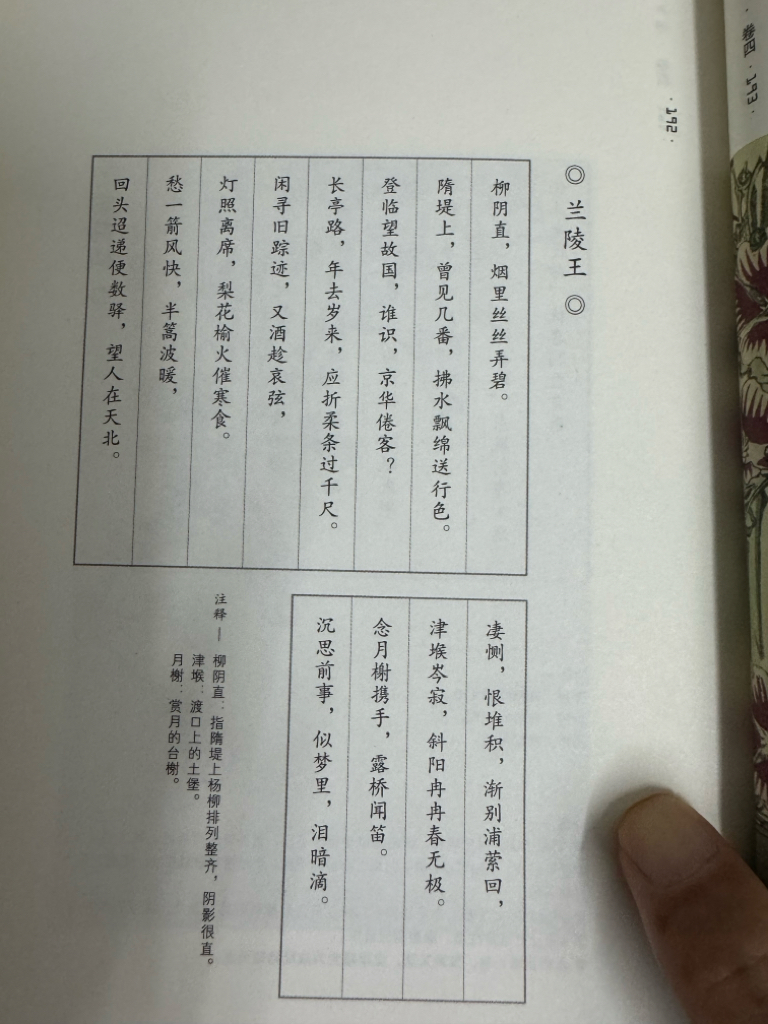 ◎ 兰陵王 ◎
柳阴直，烟里丝丝弄碧。
隋堤上，曾见几番，拂水飘绵送行色。
登临望故国，谁识，京华倦客？
长亭路，年去岁来，应折柔条过千尺。
闲寻旧踪迹，又酒趁哀弦，
灯照离席，梨花榆火催寒食。
愁一箭风快，半篙波暖，
回头迢递便数驿，望人在天北。
凄恻，恨堆积，渐别浦萦回，
津堠岑寂，斜阳冉冉春无极。
念月榭携手，露桥闻笛。
沉思前事，似梦里，泪暗滴。
注释— 柳阴直：指隋堤上杨柳排列整齐，阴影很直。
津堠：渡口上的土堡。
月榭：赏月的台榭。
·192·
·卷四·193·